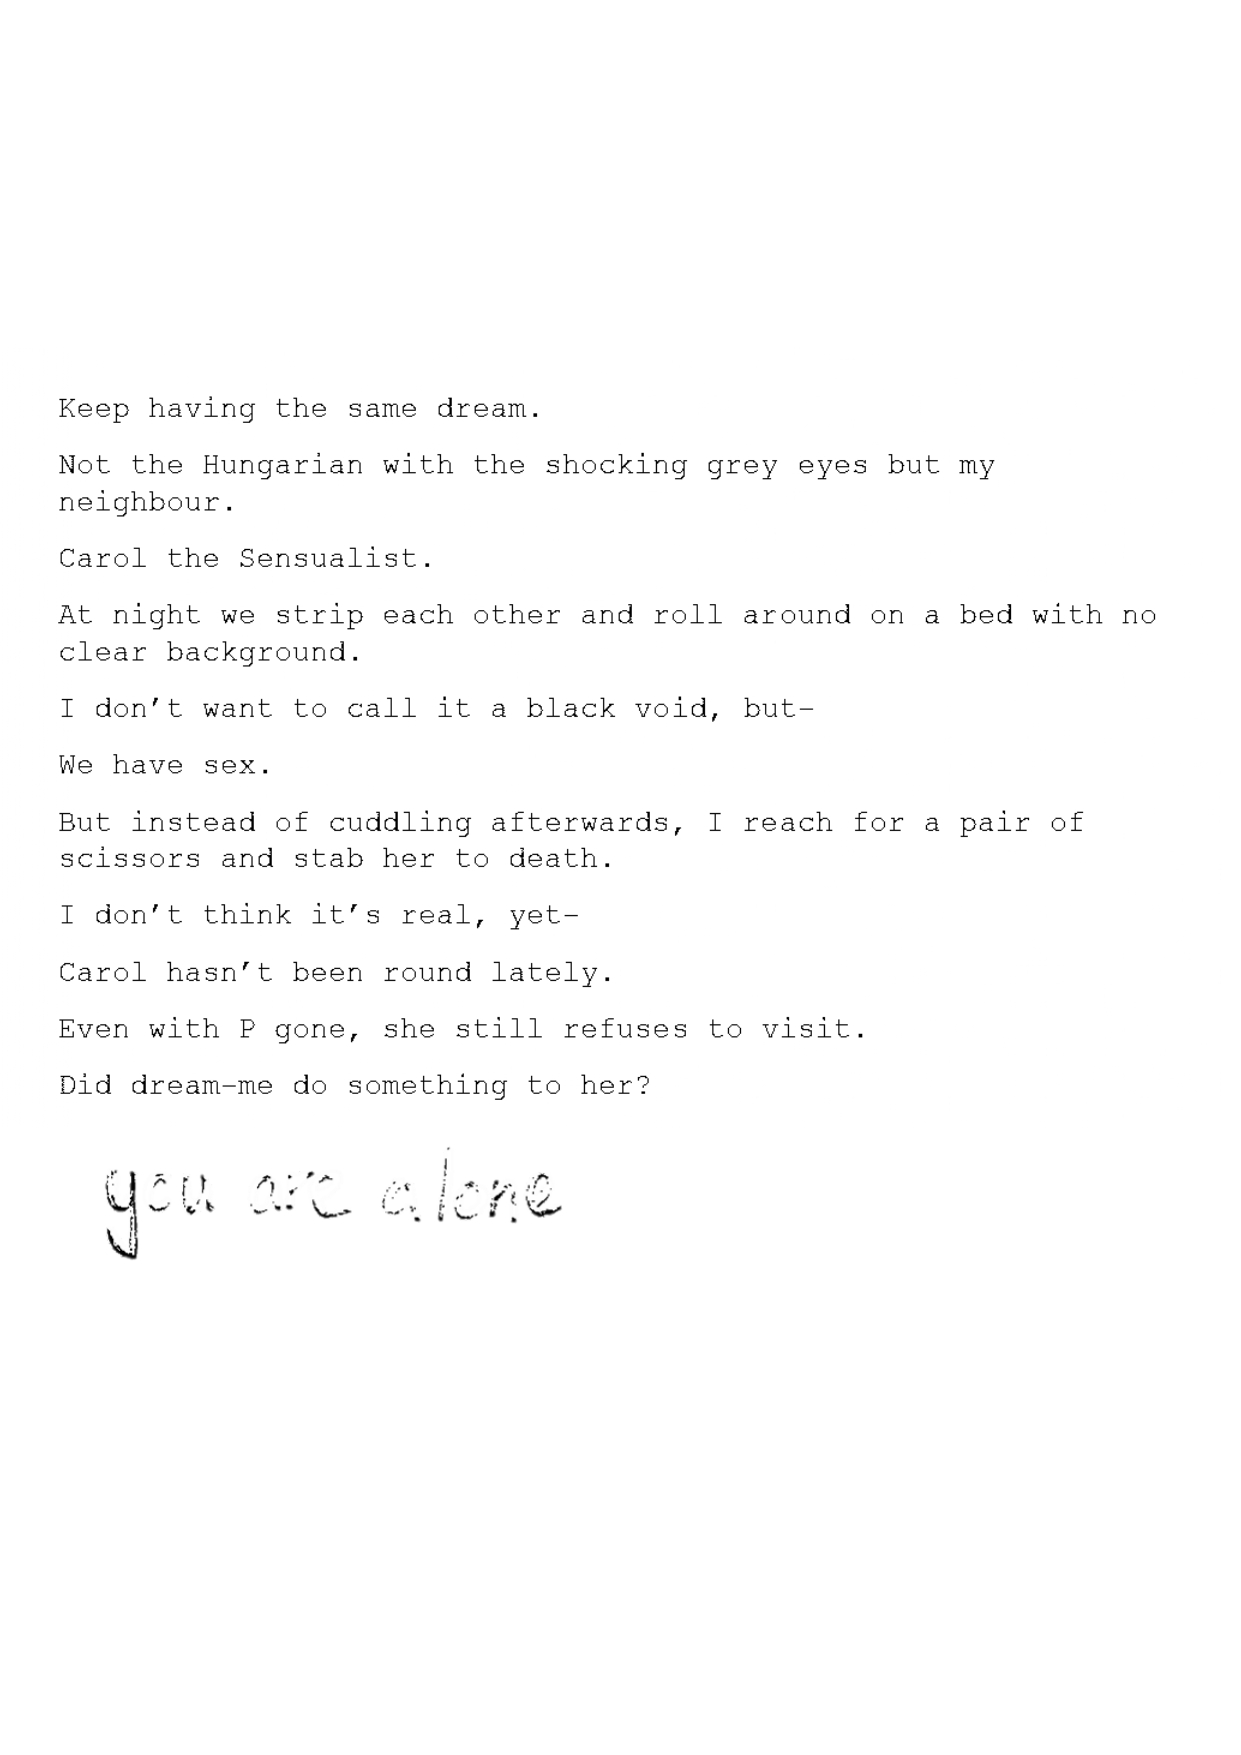 Keep having the same dream.
Not the Hungarian with the shocking grey eyes but my
neighbour.
Carol the Sensualist.
At night we strip each other and roll around on a bed with no
clear background.
I don’t want to call it a black void, but-
We have sex.
But instead of cuddling afterwards, I reach for a pair of
scissors and stab her to death.
I don’t think it’s real, yet-
Carol hasn’t been round lately.
Even with P gone, she still refuses to visit.
Did dream-me do something to her?
you are alone